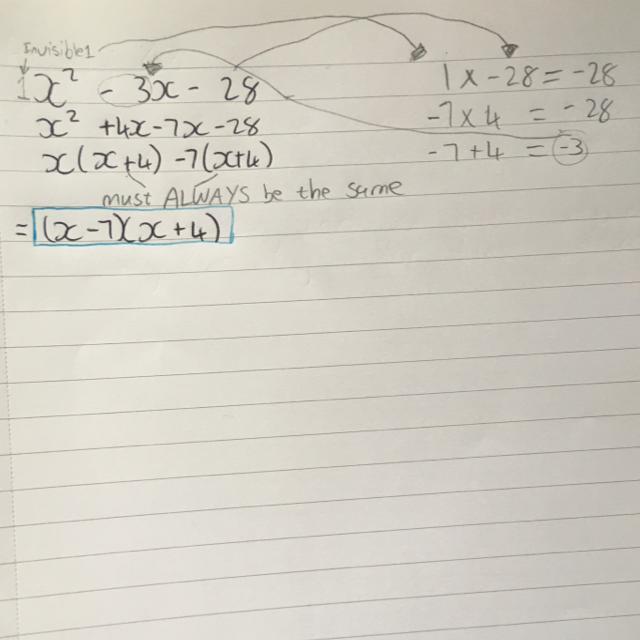 Invisible 1
1x² - 3x - 28
x² + 4x - 7x - 28
x(x+4) - 7(x+4)
must ALWAYS be the same
= (x-7)(x+4)
1 x -28 = -28
-7 x 4 = -28
-7 + 4 = -3